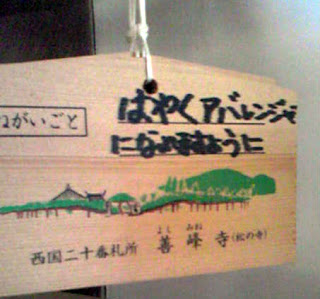 ねがいごと
はやくアバレンジャ
になれますように
西国二十番札所 善峰寺(松の寺)
よし みね